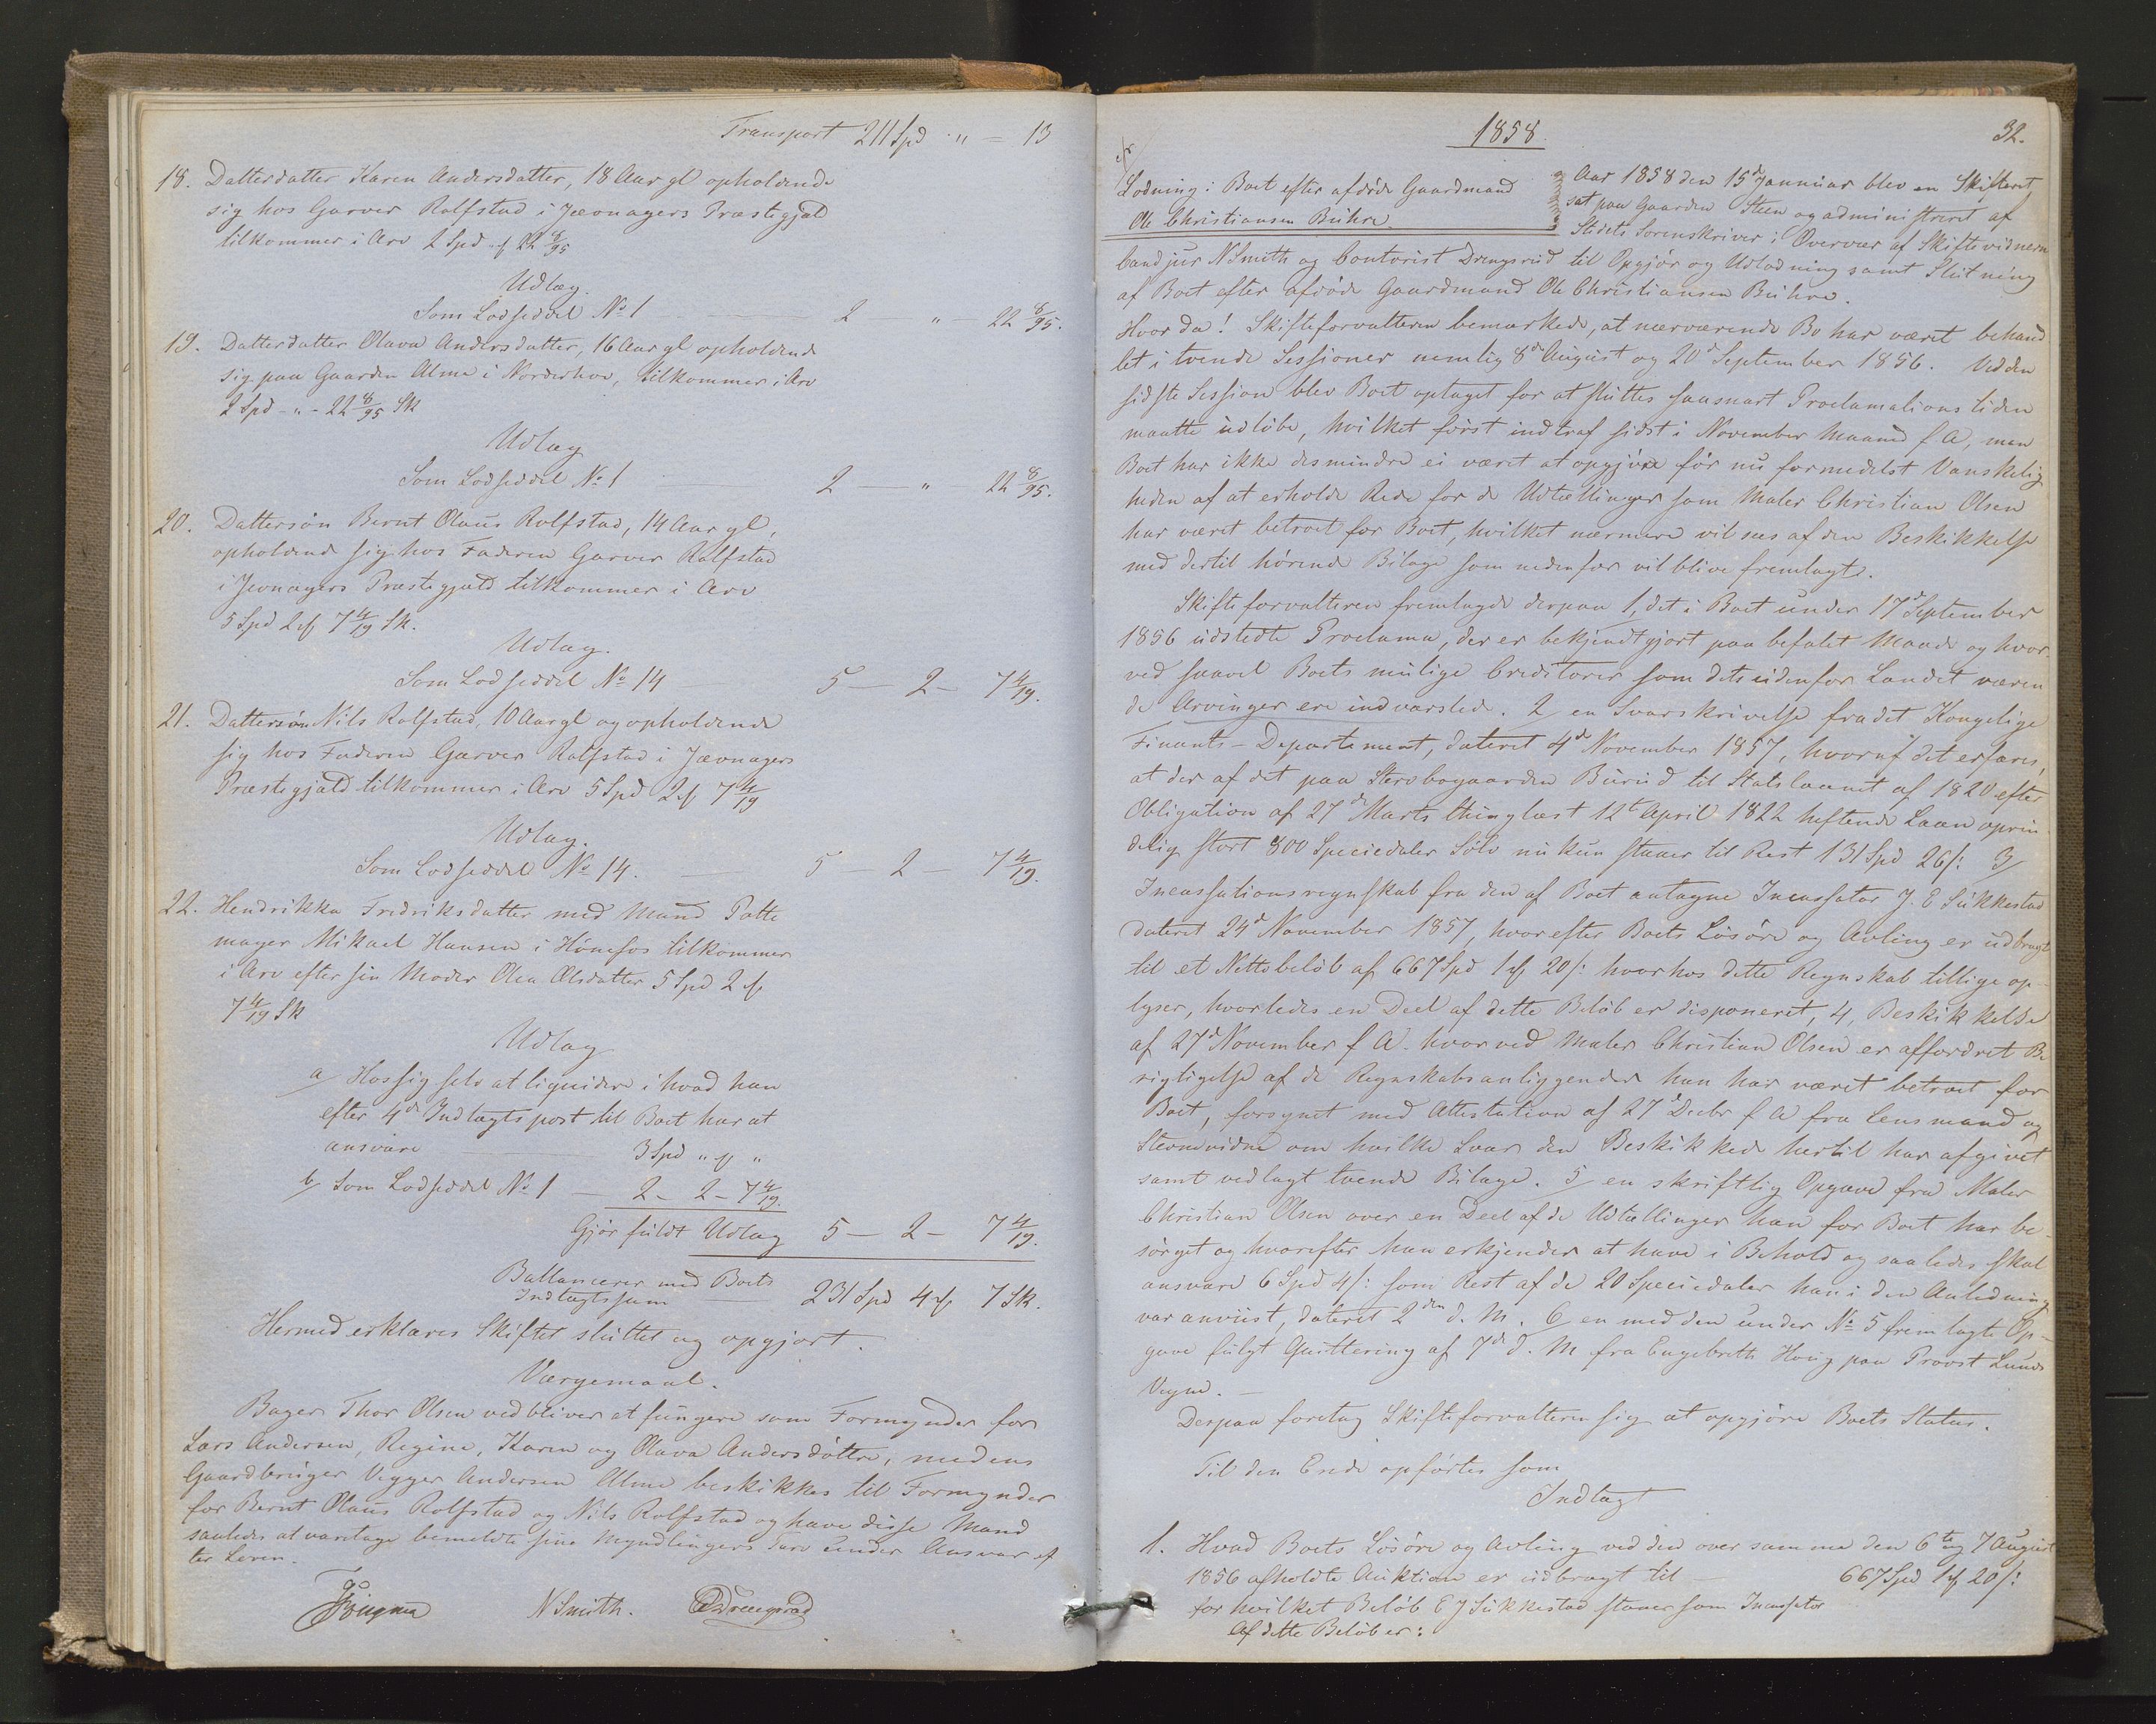 Transport 211 Spd " – 13
18. Datterdatter Karen Andersdatter, 18 Aar gl opholdende
sig hos Garver Rolfstad i Jævnagers Præstegjæld
tilkommer i Arv 2 Spd " 22 8/95
Udlæg.
Som Lodseddel No 1 — 2 — " 22 8/95.
19. Datterdatter Olava Andersdatter, 16 Aar gl opholdende
sig paa Gaarden Alme i Norderhov, tilkommer i Arv
2 Spd - " - 22 8/95 Sk
Udlæg
Som Lodseddel No 1 — 2 — " 22 8/95.
20. Dattersøn Bernt Olaus Rolfstad, 14 Aar gl,
opholdende sig hos Faderen Garver Rolfstad
i Jevnagers Præstegjæld tilkommer i Arv
5 Spd 2 ort 7 4/19 Sk.
Udlæg.
Som Lodseddel No 14 — 5 — 2 — 7 4/19.
21. Dattersøn Nils Rolfstad, 10 Aar gl og opholdende
sig hos Faderen Garver Rolfstad i Jævnagers
Præstegjæld tilkommer i Arv 5 Spd 2 ort 7 4/19
Udlæg.
Som Lodseddel No 14. — 5 — 2 — 7 4/19.
22. Hendrikka Fredriksdatter med Mand Potte
mager Mikael Hansen i Hønefos tilkommer
i Arv efter sin Moder Olea Olsdatter 5 Spd 2 ort
7 4/19 Sk
Udlæg
a/ Hos sig selv at liqvidere i hvad han
efter 4de Indtægtspost til Boet har at
ansvare — 3 Spd " ort "
b/ Som Lodseddel No 1 — 2 - 2 - 7 4/19.
Gjør fuldt Udlæg 5 — 2 — 7 4/19.
Ballancerer med Boets
Indtægtssum — 231 Spd 4 ort 7 Sk.
Hermed erklæres Skiftet sluttet og opgjort.
Værgemaal.
Bager Thor Olsen vedbliver at fungere som Formynder for
Lars Andersen, Regine, Karen og Olava Andersdøttre, medens
Gaardbruger Vegger Andersen Alme beskikkes til Formynder
for Bernt Olaus Rolfstad og Nils Rolfstad og have disse Mænd
saaledes at varetage bemeldte sine Myndlingers Tarv under Ansvar ef
ter Loven.
N Smith. Drengsrud
1858.
32.
Lodning i Boet efter afdøde Gaardmand
Ole Christiansen Buhre.
Aar 1858 den 15d Januar blev en Skifteret
sat paa Gaarden Steen og administreret af
Stedets Sorenskriver i Overvær af Skiftevidnerne
Cand jur N Smith og Contorist Drengsrud til Opgjør og Udlodning samt Slutning
af Boet efter afdøde Gaardmand Ole Christiansen Buhre.
Hvor da! Skifteforvalteren bemærkede, at nærværende Bo har været behand
let i tvende Sessioner nemlig 8de August og 20d September 1856. Ved den
sidste Session blev Boet optaget for at sluttes saasnart Proclamationstiden
maatte udløbe, hvilket først indtraf sidst i November Maaned f A, men
Boet har ikke desmindre ei været at opgjøre før nu formedelst Vanskelig
heden af at erholde Rede for de Udtællinger som Maler Christian Olsen
har været betroet for Boet, hvilket nærmere vil sees af den Beskikkelse
med dertil hørende Bilage som nedenfor vil blive fremlagte.
Skifteforvalteren fremlagde derpaa 1, det i Boet under 17d September
1856 udstedte Proclama, der er bekjendtgjort paa befalet Maade og hvor-
ved saavel Boets mulige Creditorer som dets udenfor Landet væren
de Arvinger ere indvarslede. 2/ en Svarskrivelse fra det Kongelige
Finants-Departement, dateret 4d November 1857, hvoraf det erfares,
at der af det paa Stervbogaarden Burud til Statslaanet af 1820 efter
Obligation af 27de Marts thinglæst 12te April 1822 heftende Laan oprin
delig stort 300 Speciedaler Sølv nu kun staaer til Rest 131 Spd 26 s: 3/
Incassationsregnskab fra den af Boet antagne Incassator J. E Sukkestad
dateret 24d November 1857, hvorefter Boets Løsøre og Avling er udbragt
til et Nettobeløb af 667 Spd 1 ort 20 s: hvorhos dette Regnskab tillige op-
lyser, hvorledes en Deel af dette Beløb er disponeret, 4, Beskikkelse
af 27d November f A. hvorved Maler Christian Olsen er affordret Be
rigtigelse af de Regnskabsanliggender han har været betroet for
Boet, forsynet med Attestation af 27d Decbr f A fra Lensmand og
Stevnevidne om hvilke Svar den Beskikkede hertil har afgivet
samt vedlagt tvende Bilage. 5/ en skriftlig Opgave fra Maler
Christian Olsen over en Deel af de Udtællinger han for Boet har be-
sørget og hvorefter han erkjender at have i Behold og saaledes skal
ansvare 6 Spd 4 s: som Rest af de 20 Speciedaler han i den Anledning
var anviist, dateret 2den d. M. 6/ en med den under No 5 fremlagte Op-
gave fulgt Quittering af 7de d. M fra Engebreth Houg paa Provst Lunds
Vegne. —
Derpaa foretog Skifteforvalteren sig at opgjøre Boets Status.
Til den Ende opførtes som
Indtægt
1. Hvad Boets Løsøre og Avling ved den over samme den 6te og 7 August
1856 afholdte Auktion er udbragt til — 667 Spd 1 ort 20 s:
for hvilket Beløb E J Sukkestad staaer som Incassator
Af dette Beløb er: